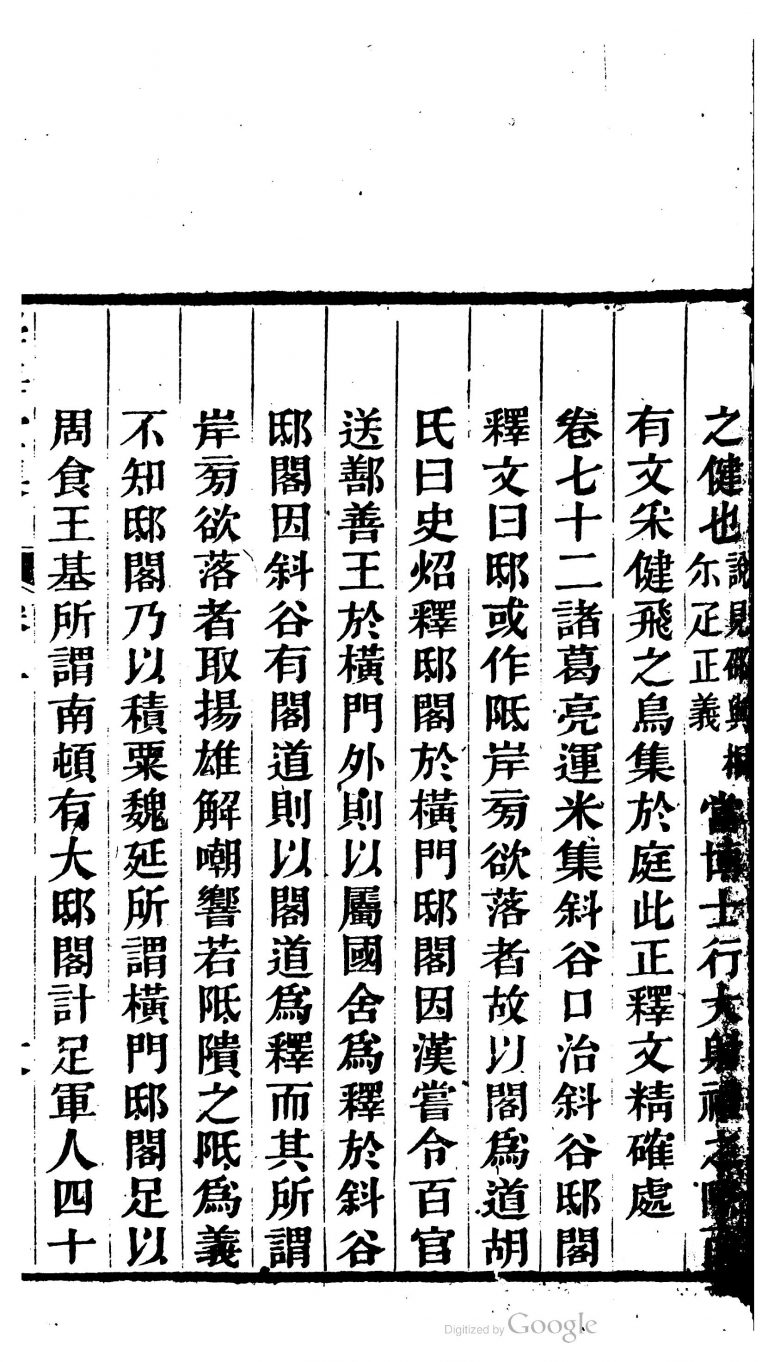 之健也說見邵與桐尒疋正義當博士行大射禮之際
有文釆健飛之鳥集於庭此正釋文精確處
卷七十二諸葛亮運米集斜谷口治斜谷邸閣
釋文曰邸或作阺岸旁欲落者故以閣爲道胡
氏曰史炤釋邸閣於橫門邸閣因漢嘗令百官
送鄯善王於橫門外則以屬國舍爲釋於斜谷
邸閣因斜谷有閣道則以閣道爲釋而其所謂
岸旁欲落者取揚雄解嘲響若阺隤之阺爲義
不知邸閣乃以積粟魏延所謂橫門邸閣足以
周食王基所謂南頓有大邸閣計足軍人四十
Digitized by Google